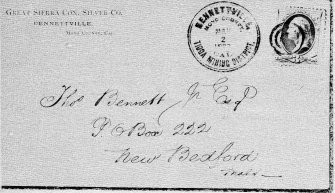 GREAT SIERRA CON. SILVER CO.
BENNETTVILLE,
MONO COUNTY, CAL.
BENNETTVILLE
MONO COUNTY
2
CAL.
TIOGA MINING DISTRICT.
Thos Bennett Jr Esq
P O Box 222
New Bedford
Mass